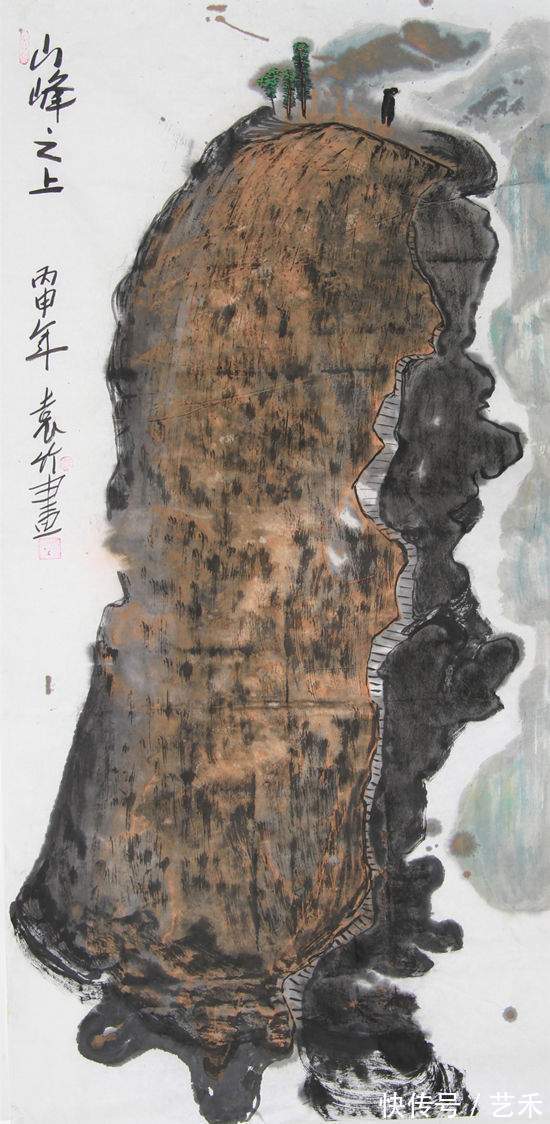 山峰之上
丙申年 袁竹画
快传号 / 艺禾